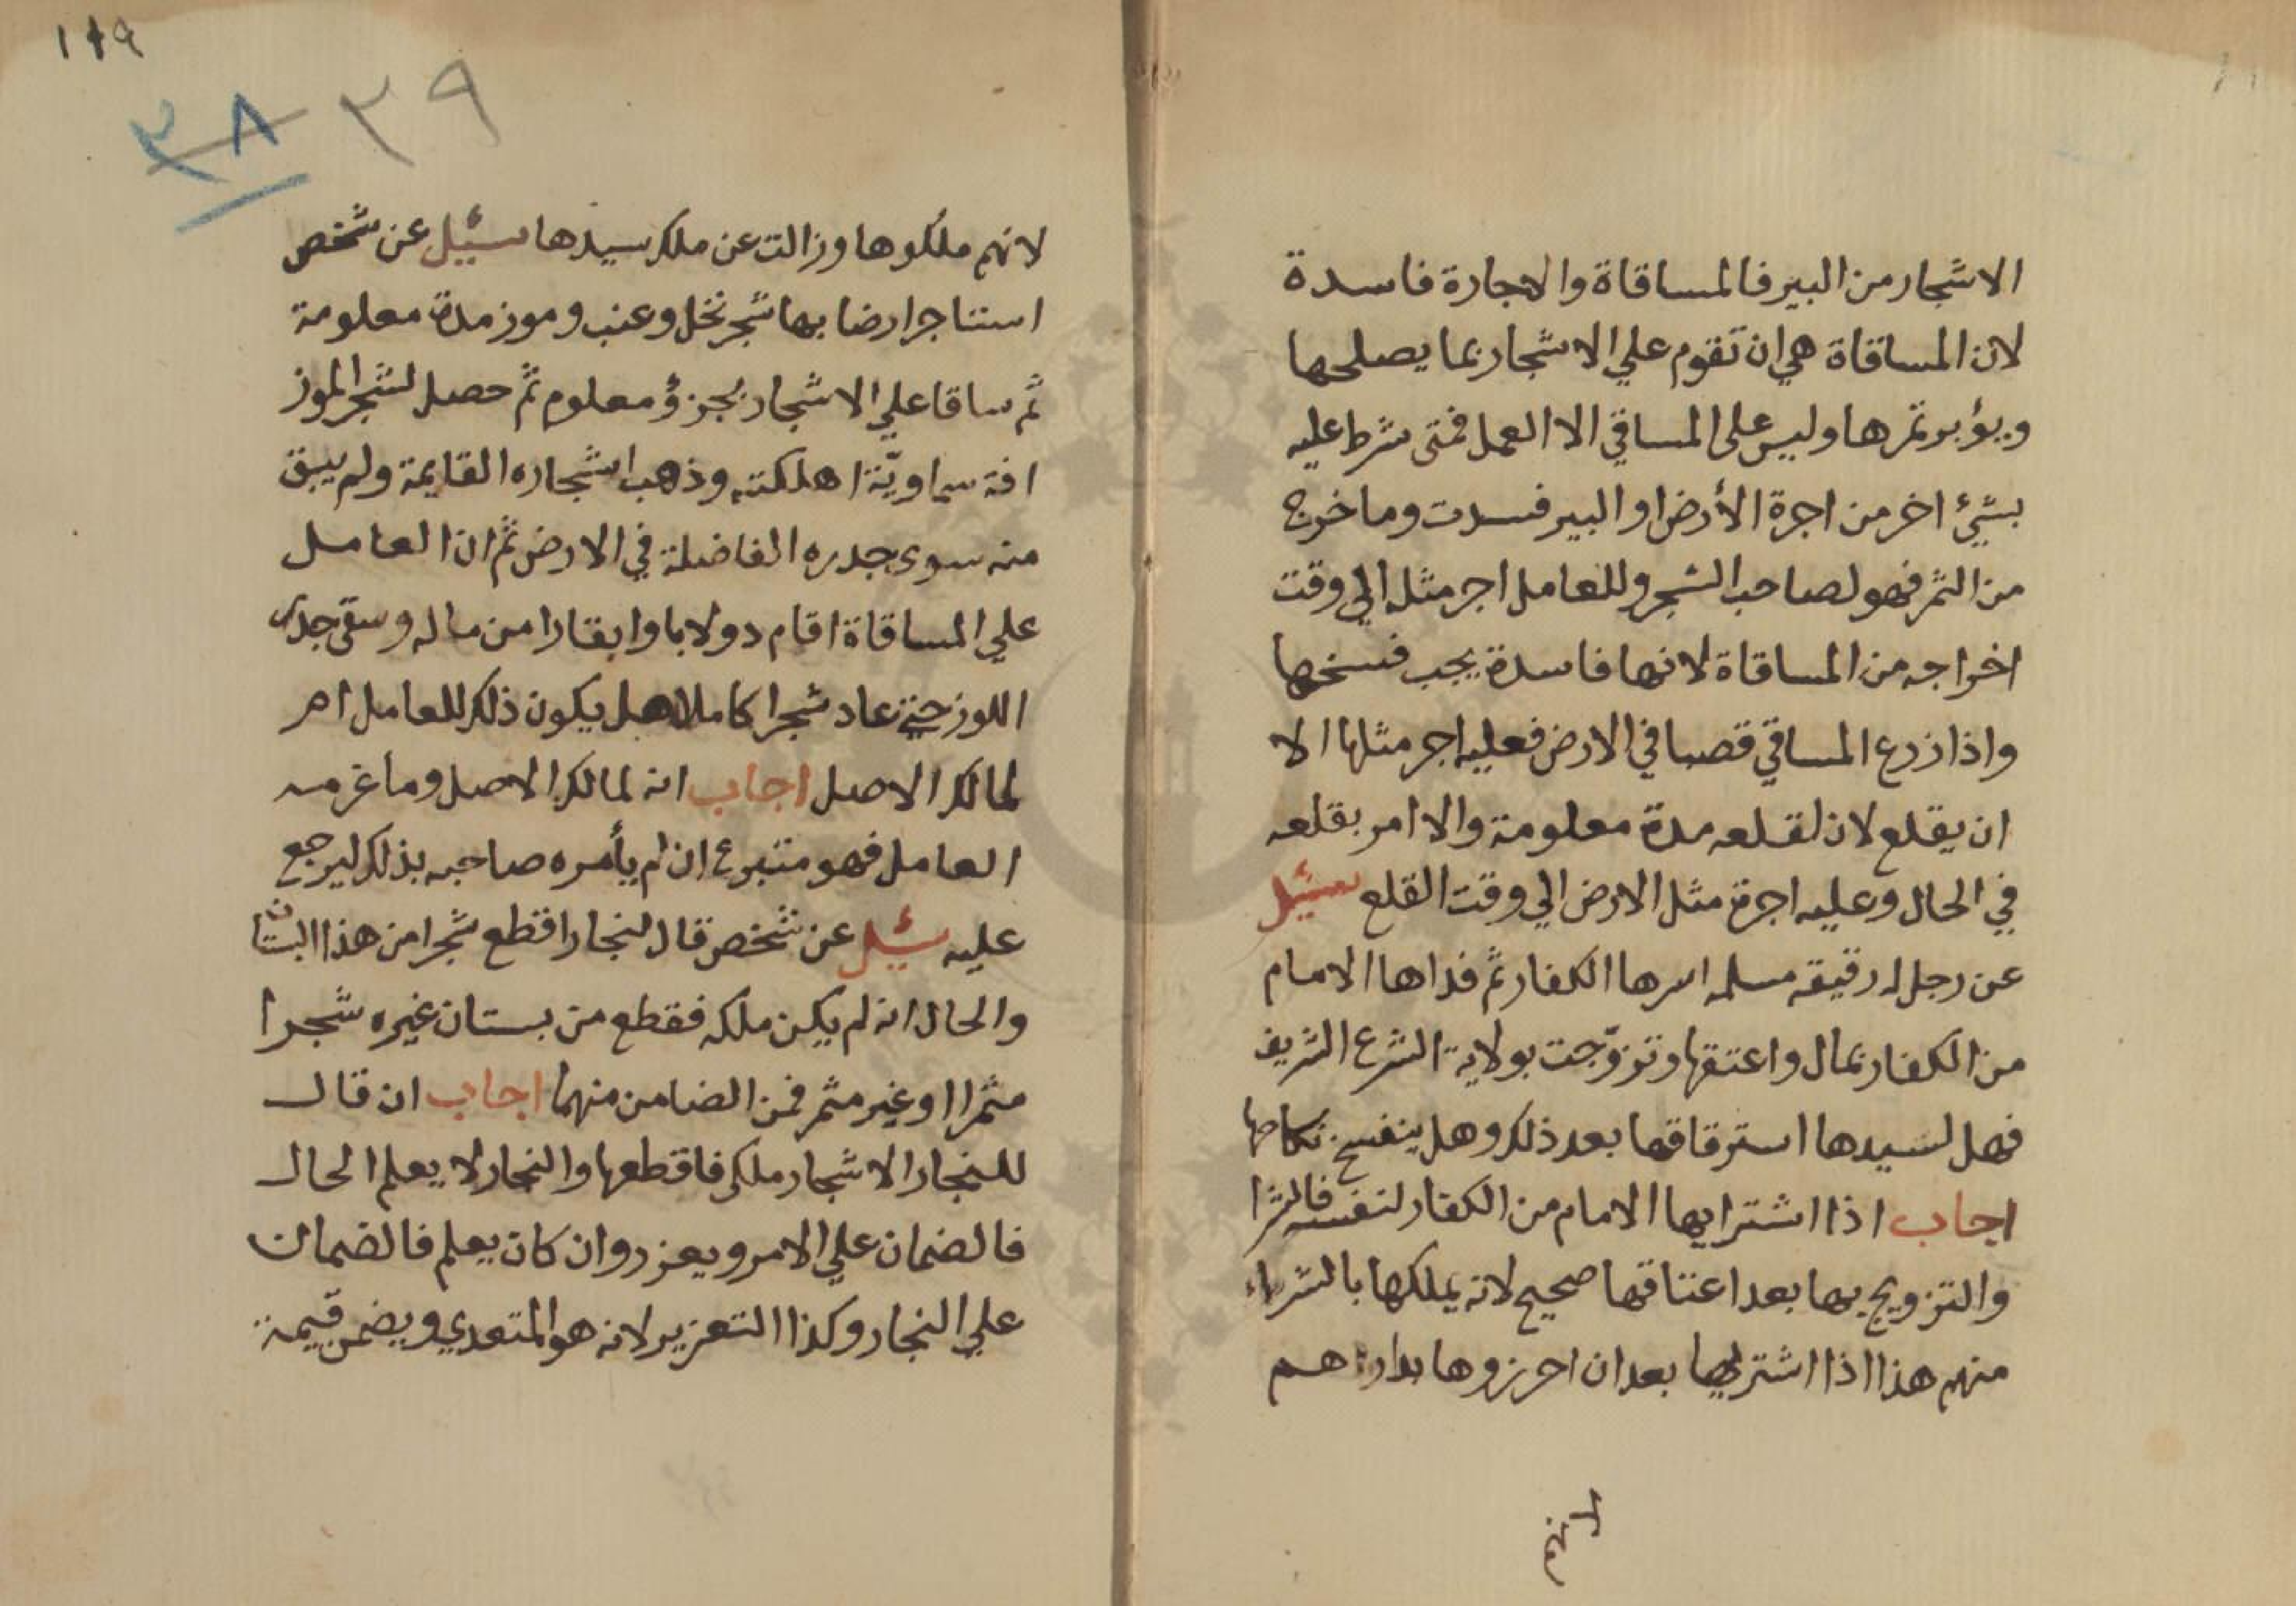 الاشجار من البير فالمساقاة والاجارة فاسدة
لان المساقاة هي ان تقوم علي الاشجار بما يصلحها
ويؤبر ثمرها وليس على المساقي الا العمل فمتى شرط عليه
بشيئ اخر من اجرة الأرض او البير فسدت وما خرج
من الثمر فهو لصاحب الشجر وللعامل اجر مثله الي وقت
اخراجه من المساقاة لانها فاسدة يجب فسخها
واذا زرع المساقي قصبا في الارض فعليه اجر مثلها الا
ان يقلع لان لقلعه مدة معلومة والا امر بقلعه
في الحال وعليه اجرة مثل الارض الي وقت القلع سئيل
عن رجل له رقيقه مسلمه اسرها الكفار ثم فداها الامام
من الكفار بمال واعتقها وتزوّجت بولاية الشرع الشريف
فهل لسيدها استرقاقها بعد ذلك وهل ينفسخ نكاحها
اجاب اذا اشترايها الامام من الكفار لنفسه فالشرا
والتزويج بها بعد اعتاقها صحيح لانه يملكها بالشراء
منهم هذا اذا اشتريها بعد ان احرزوها بدارهم
لانهم
١١٩
٣٨ ٣٩
لانهم ملكوها وزالت عن ملك سيدها سئيل عن شخص
استاجر ارضا بها شجر نخل وعنب وموز مدة معلومة
ثم ساقا علي الاشجار بجزؤ معلوم ثم حصل لشجر الموز
افة سماويّة اهلكته وذهب اشجاره القايمة ولم يبق
منه سوى جدره الفاضلة في الارض ثم ان العامل
علي المساقاة اقام دولابا وابقارا من ماله وسقى جدره
اللوز حتي عاد شجرا كاملا هل يكون ذلك للعامل ام
لمالك الاصل اجاب انه لمالك الاصل وما غرمه
العامل فهو متبرع ان لم يأمره صاحبه بذلك ليرجع
عليه سئيل عن شخص قال لنجار اقطع شجرا من هذا البستان
والحال انه لم يكن ملكه فقطع من بستان غيره شجرا
مثمرا او غير مثمر فمن الضامن منهما اجاب ان قال
للنجار الاشجار ملكي فاقطعها والنجار لا يعلم الحال
فالضمان علي الامر ويعزر وان كان يعلم فالضمان
علي النجار وكذا التعزير لانه هو المتعدي ويضمن قيمة